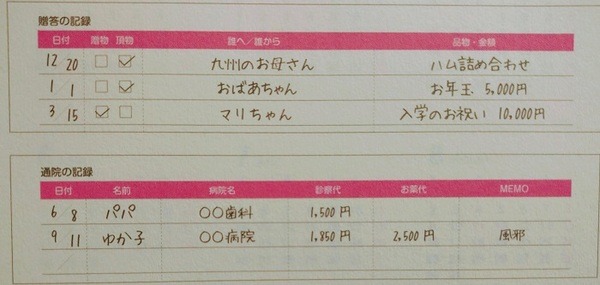 贈答の記録
日付 贈物 頂物 誰へ/誰から 品物・金額
12/20 □ ☑ 九州のお母さん ハム詰め合わせ
1/1 □ ☑ おばあちゃん お年玉 5,000円
3/15 ☑ □ マリちゃん 入学のお祝い 10,000円
通院の記録
日付 名前 病院名 診察代 お薬代 MEMO
6/8 パパ ○○歯科 1,500円
9/11 ゆか子 ○○病院 1,850円 2,500円 風邪